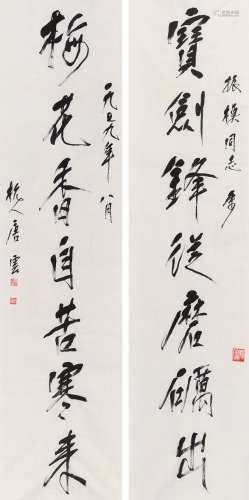 振模同志屬
寶劍鋒從磨礪出
一九七九年八月
梅花香自苦寒來
杭人唐雲